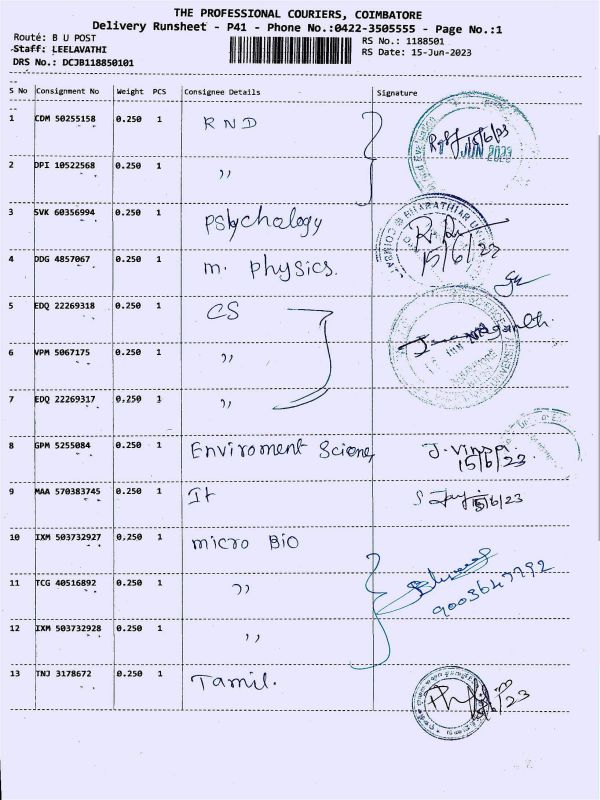 THE PROFESSIONAL COURIERS, COIMBATORE
Delivery Runsheet - P41 - Phone No.:0422-3505555 - Page No.:1
Route: B U POST
RS No.: 1188501
Staff: LEELAVATHI
RS Date: 15-Jun-2023
DRS No.: DCJB118850101
S No Consignment No Weight PCS Consignee Details Signature
1 CDM 50255158 0.250 1 RND 15/6/23
JUN 2023
2 DPI 10522568 0.250 1 ,,
3 SVK 60356994 0.250 1 Psychology
BHARATHIAR
15/6/23
4 DDG 4857067 0.250 1 m. physics.
5 EDQ 22269318 0.250 1 CS
6 VPM 5067175 0.250 1 ,,
7 EDQ 22269317 0.250 1 ,,
8 GPM 5255084 0.250 1 Enviroment Scienc J. Vinspi
15/6/23.
9 MAA 570383745 0.250 1 It 15/6/23
10 IXM 503732927 0,250 1 micro Bio
11 TCG 40516892 0.250 1 ,,
12 IXM 503732928 0.250 1 ,,
13 TNJ 3178672 0.250 1 Tamil.